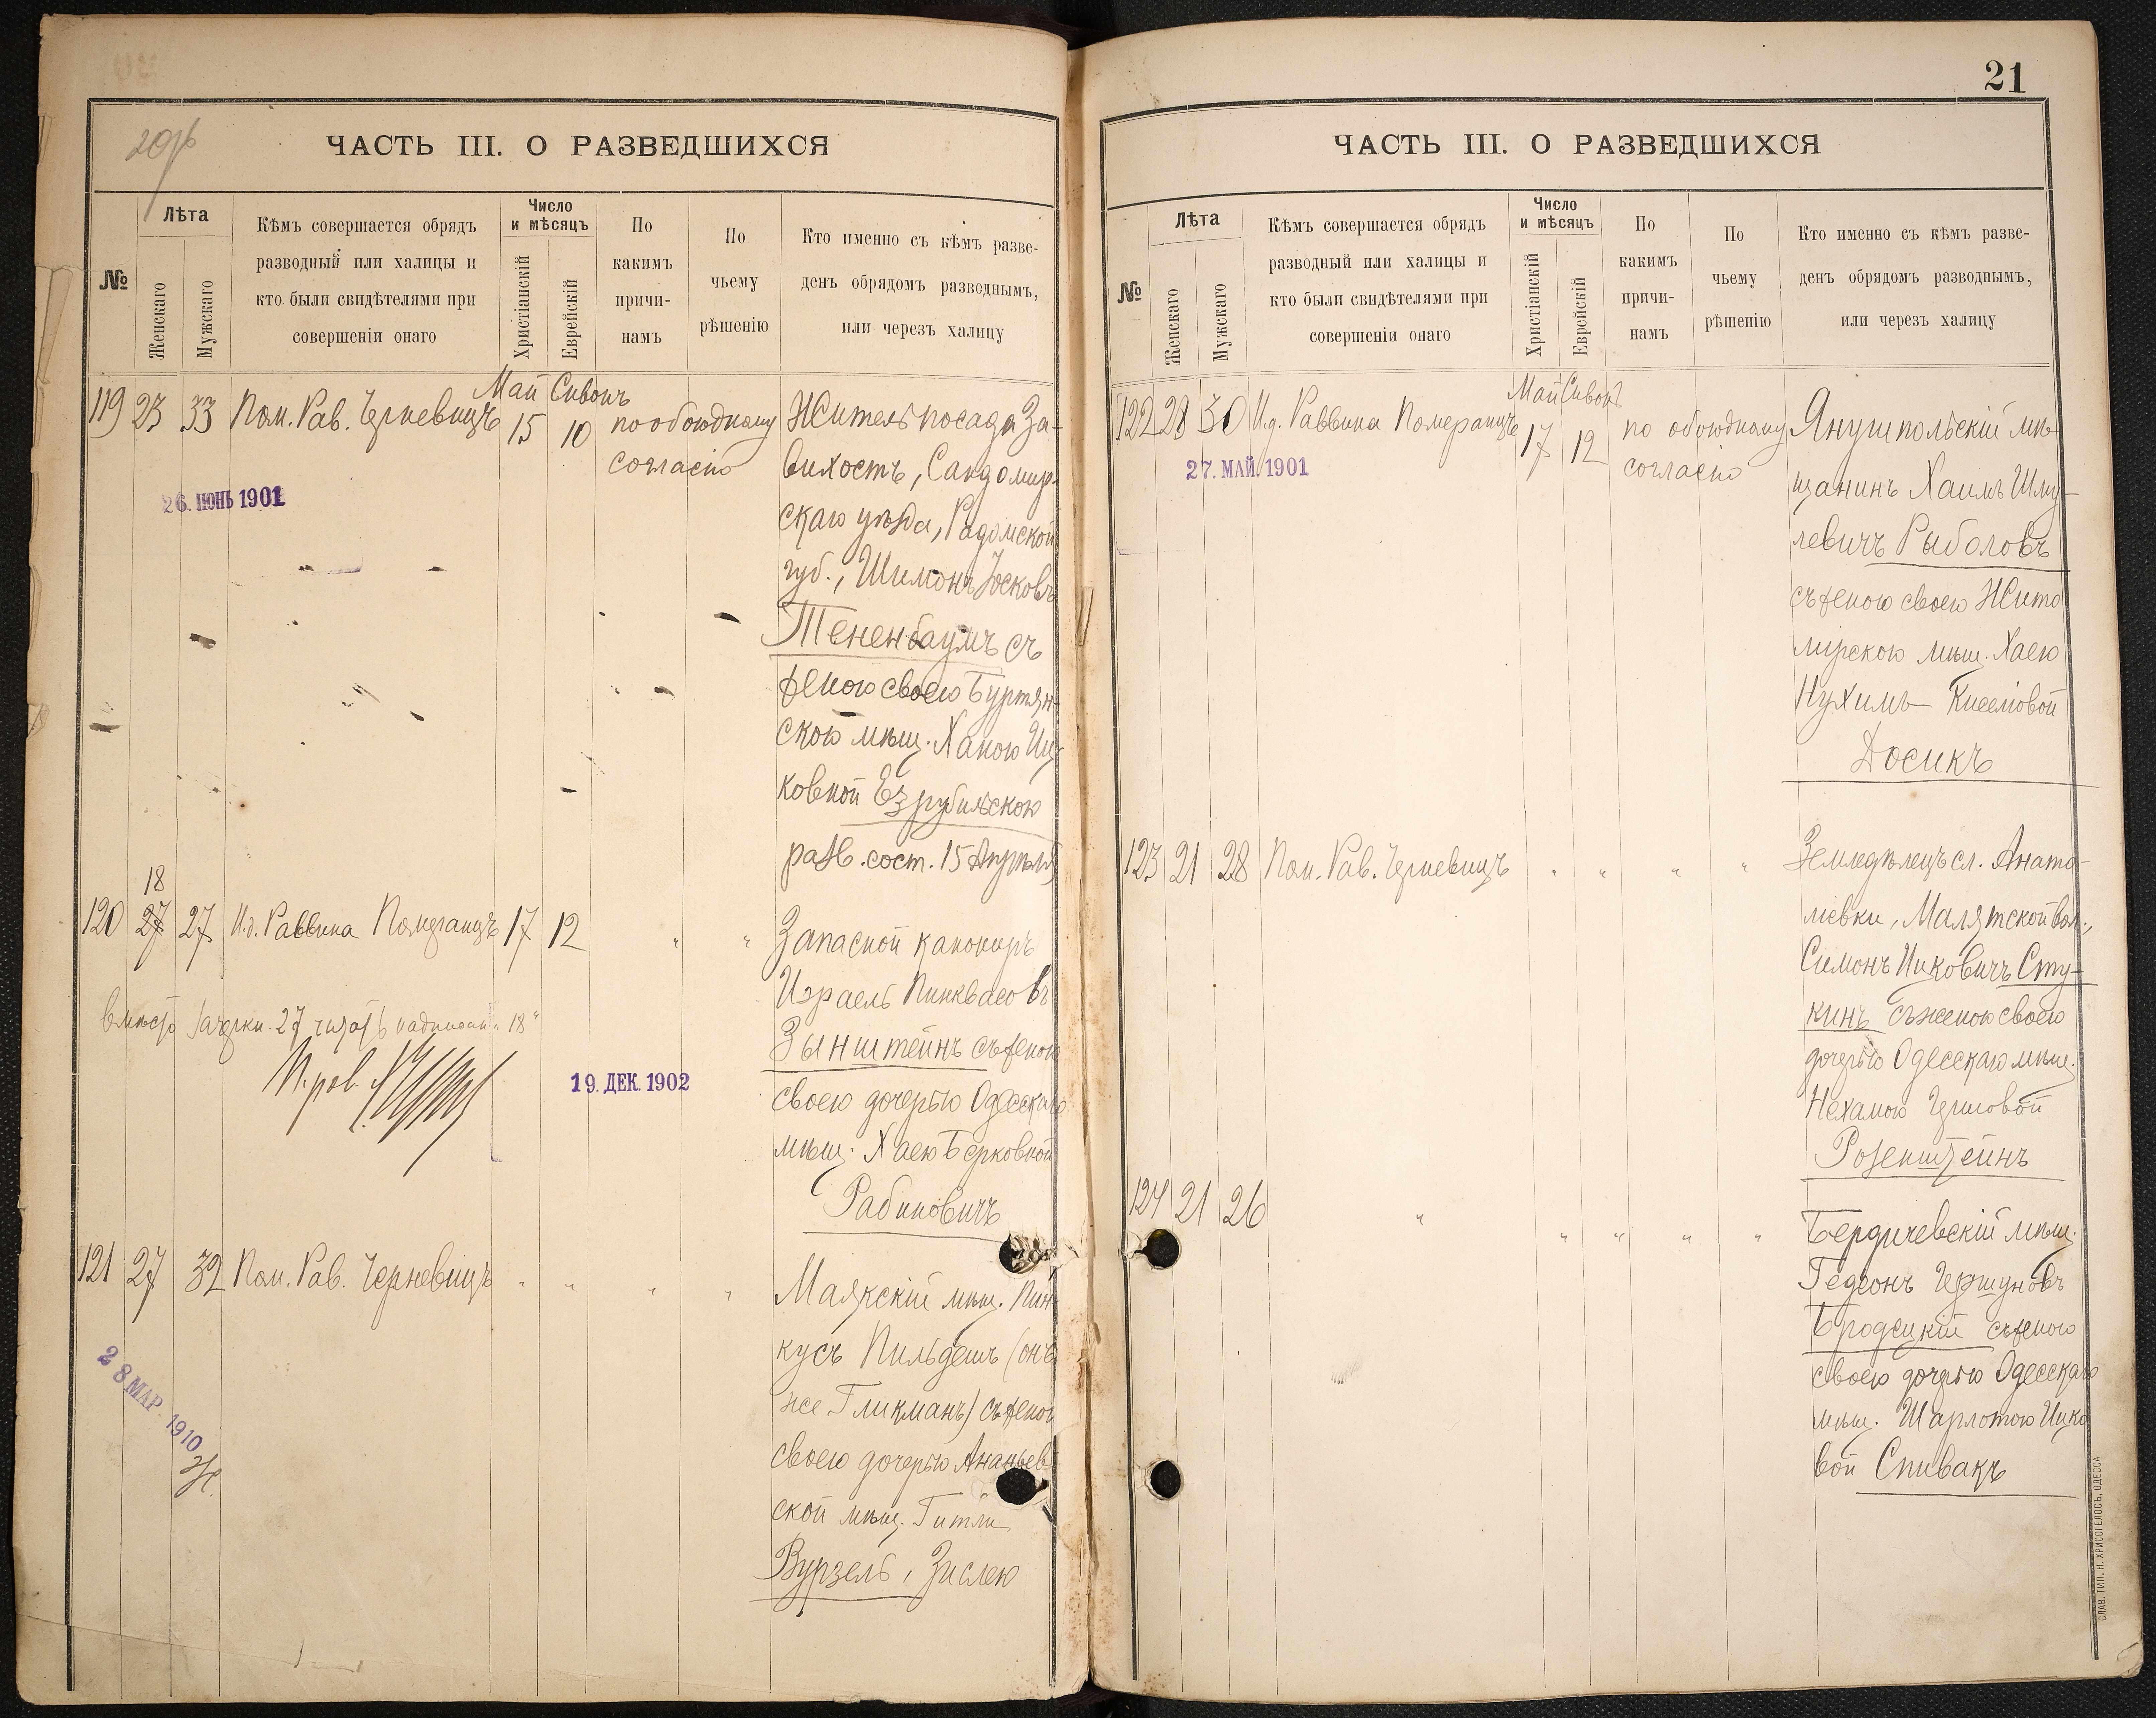 20об
ЧАСТЬ III. О РАЗВЕДШИХСЯ
№
Лѣта
Женскаго
Мужскаго
Кѣмъ совершается обрядъ
разводный или халицы и
кто были свидѣтелями при
совершеніи онаго
Число
и мѣсяцъ
Христіанскій
Еврейскій
По
какимъ
причи-
намъ
По
чьему
рѣшенію
Кто именно съ кѣмъ разве-
денъ обрядомъ разводнымъ,
или черезъ халицу
119 23 33 Пом. Рав. Черневицъ
Май Сивонъ
15 10
по обоюдному
согласію
Житель посада За-
вихостъ, Сандомир-
скаго уѣзда, Радомской
губ., Шимонъ Іосковъ
Тененбаумъ съ
женою своею Буртян-
скою мѣщ. Ханою Иц-
ковной Езрубильскою
разв. сост. 15 Апрѣля
26. ІЮНЬ 1901
18
120 27 27 И.д. Раввина Померанцъ 17 12 " "
Запасной канониръ
Израель Пинквасовъ
Зынштейнъ съ женою
своею дочерью Одесскаго
мѣщ. Хаею Берковной
Рабиновичъ
вмѣсто зачеркн. 27 читать надписан. "18"
19. ДЕК. 1902
121 27 32 Пом. Рав. Черневицъ " " " "
Маякскій мѣщ. Пин-
кусъ Пильдешъ (онъ
же Гликманъ) съ женою
своею дочерью Ананьев-
ской мѣщ. Гитли
Вурзель, Зислею
28 МАР. 1910
21
ЧАСТЬ III. О РАЗВЕДШИХСЯ
№
Лѣта
Женскаго
Мужскаго
Кѣмъ совершается обрядъ
разводный или халицы и
кто были свидѣтелями при
совершеніи онаго
Число
и мѣсяцъ
Христіанскій
Еврейскій
По
какимъ
причи-
намъ
По
чьему
рѣшенію
Кто именно съ кѣмъ разве-
денъ обрядомъ разводнымъ,
или черезъ халицу
122 28 30 И.д. Раввина Померанцъ
Май Сивонъ
17 12
по обоюдному
согласію
Янушпольскій мѣ-
щанинъ Хаимъ Шму-
левичъ Рыболовъ
съ женою своею Жито
мірскою мѣщ. Хаею
Нухимъ-Киселіовой
Досикъ
27. МАЙ. 1901
123 21 28 Пом. Рав. Черневицъ " " " "
Земледѣлецъ сл. Анато-
лієвки, Малятской вол.,
Симонъ Ицковичъ Сту-
кинъ съ женою своею
дочерью Одесскаго мѣщ.
Нехамою Гершовой
Розенштейнъ
124 21 26 " " " " "
Бердичевскій мѣщ.
Гедеонъ Гершуновъ
Бродецкій съ женою
своею дочерью Одесскаго
мѣщ. Шарлотою Ицко
вой Спивакъ
СЛАВ. ТИП. Н. ХРИСОГЕЛОСЪ, ОДЕССА